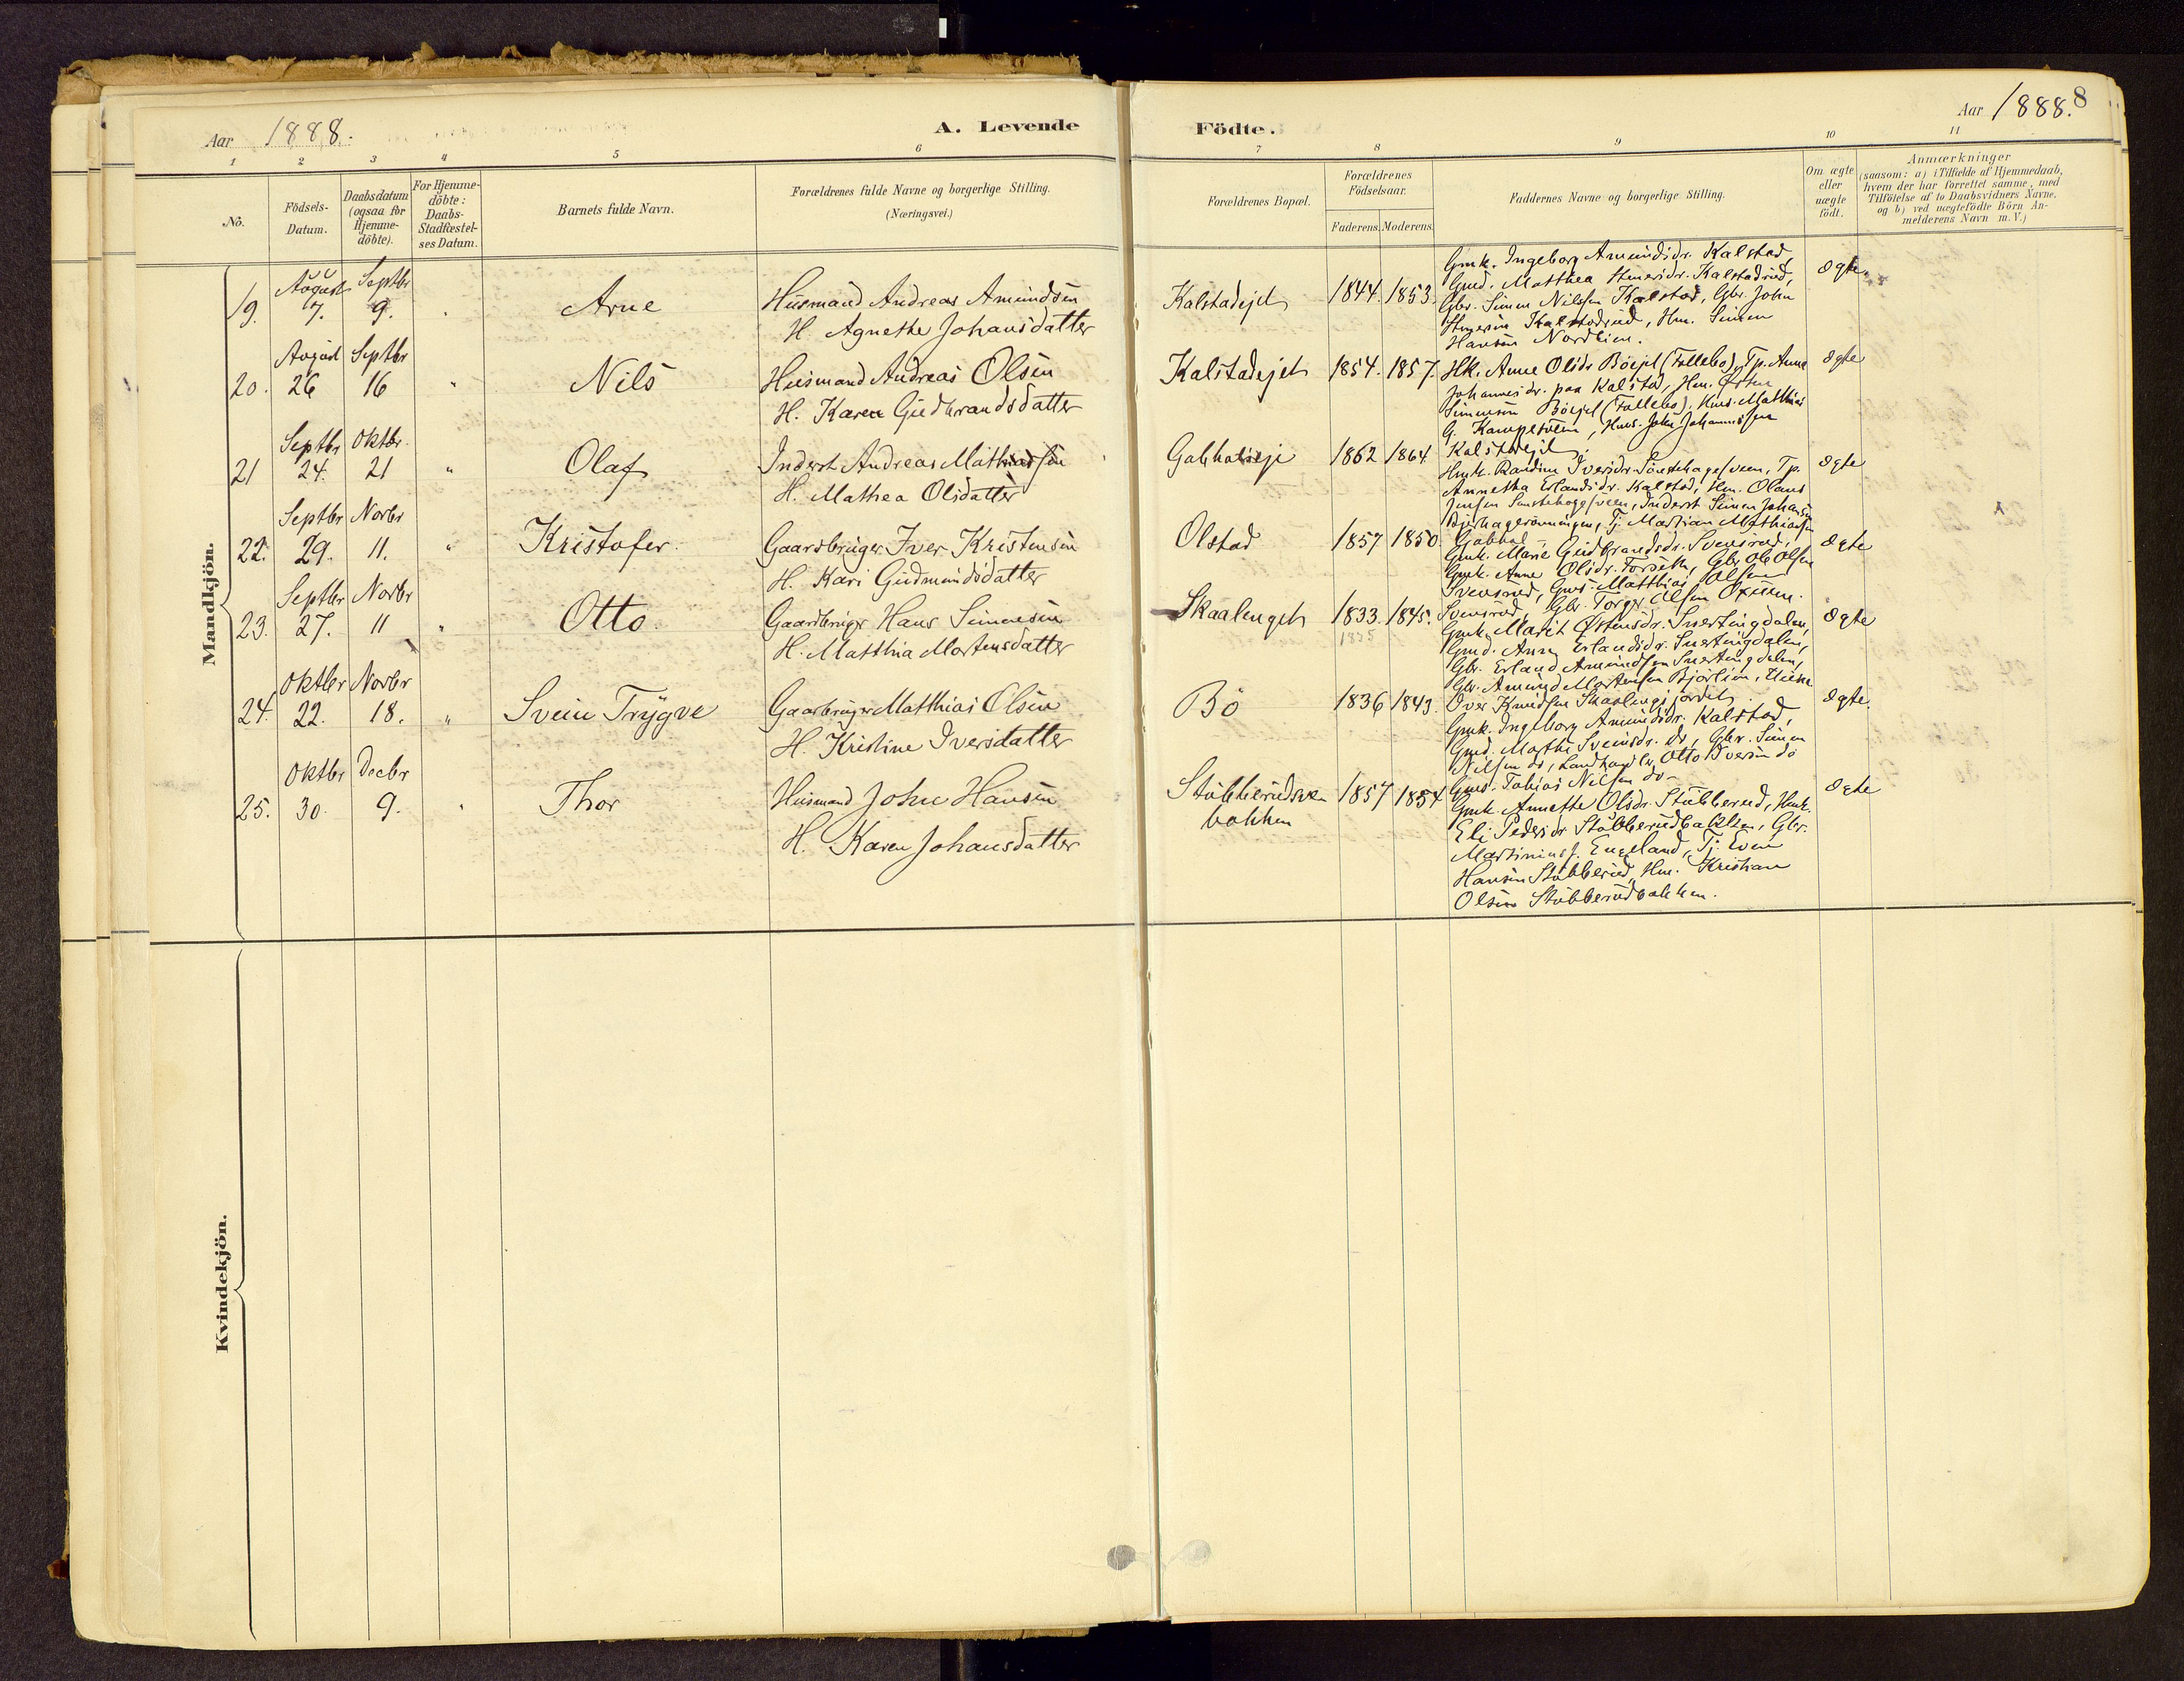 Aar 1888.
A. Levende
Födte.
Aar 1888. 8
1 2 3 4 5 6 7 8 9 10 11
No.
Födsels-
Datum.
Daabsdatum
(ogsaa for
Hjemme-
döbte).
For Hjemme-
döbte:
Daabs-
Stadfæstel-
ses Datum.
Barnets fulde Navn.
Forældrenes fulde Navne og borgerlige Stilling.
(Næringsvei.)
Forældrenes Bopæl.
Forældrenes
Födselsaar.
Faderens. Moderens.
Faddernes Navne og borgerlige Stilling.
Om ægte
eller
uægte
födt.
Anmærkninger
(saasom: a) i Tilfælde af Hjemmedaab,
hvem der har forrettet samme, med
Tilföielse af to Daabsvidners Navne.
og b) ved uægtefödte Börn An-
melderens Navn m. V.)
Mandkjön.
August Septbr
19. 7. 9. Arne
Husmand Andreas Amundsen
H. Agnethe Johansdatter
Kalstadejet 1844. 1853.
Gmk. Ingeborg Amundsdr. Kalstad,
Gmd. Matthea Stinersdr. Kalstadrud,
Gbr. Simen Nilsen Kalstad, Gbr. John
Kalstadrud, Hm. Simen
Hansen Nordlien.
ægte
August Septbr
20. 26 16 " Nils
Husmand Andreas Olsen
H. Karen Gudbrandsdatter
Kalstadejet 1854. 1857.
Hk. Anne Olsdr. Böejet (Follebo), Tp. Anne
Johannesdr. paa Kalstad, Hm. Østen
Simensen Böejet (Follebo), Hus. Matthias
G. Kampesveen, Hus. John Johannessen
Kalstadejet.
ægte
Septbr Oktbr.
21 24. 21 " Olaf
Inderst Andreas Mathiassen
H. Mathea Olsdatter
Gahhaleje 1862 1864
Hmk. Randine Iversdr. Sønstehagesveen, Tp.
Annetha Erlandsdr. Kalstad, Hm. Olaus
Jensen Sønstehagesveen, Inderst Simen Johansen
Bjørhagerønningen, Tj. Martian Mathiassen
Gahhal
ægte
Septbr Novbr
22. 29. 11. " Kristofer
Gaardbruger Iver Kristensen
H. Kari Gudmundsdatter
Olstad 1857 1850
Gmk. Marie Gudbrandsdr. Svensrud,
Gmk. Anne Olsdr. Forseth, Gbr. Ole Olsen
Svensrud, Gus. Matthias Olsen
Svensrud, Gbr. Torger Olsen Oxum.
ægte
Septbr Novbr
23. 27. 11 " Otto
Gaardbruger Hans Simensen
H. Matthia Mortensdatter
Skaalenget 1833. 1845.
1835
Gmk. Marit Østensdr. Snertingdalen,
Gmd. Anne Erlandsdr. Snertingdalen,
Gbr. Erland Amundsen Snertingdalen,
Gbr. Amund Mortensen Bjørlien,
Over Knudsen Skaalengjordet
ægte
Oktbr Novbr
24. 22. 18. " Svein Trygve
Gaardbruger Matthias Olsen
H. Kristine Iversdatter
Bö 1836 1843.
Gmk. Ingeborg Amundsdr. Kalstad,
Gmd. Marthe Sveinsdr. do, Gbr. Simen
Nilsen do, Landhandler Otto Iversen do
Gus. Tobias Nilsen do
ægte.
Oktbr Decbr
25. 30. 9. " Thor
Husmand John Hansen
H. Karen Johansdatter
Stubberudsve
bakken 1857 1854
Gmk. Annethe Olsdr. Stubberud, Hmk.
Eli Pedersdr. Stubberudbakken, Gbr.
Martinius J. Engeland, Tj. Even
Hansen Stubberud, Hm. Kristian
Olsen Stubberudbakken.
ægte
Kvindekjön.